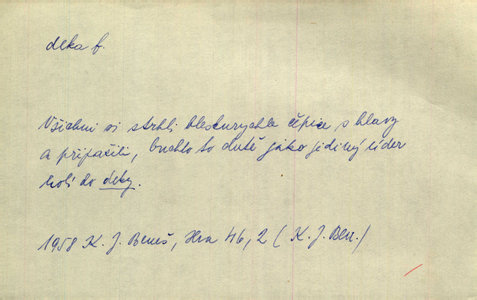 deka f.
Všichni si strhli bleskurychle čepice s hlavy
a připažili, buchlo to dutě jako jediný úder
holí do deky.
1958 K. J. Beneš, Hra 46, 2 (K. J. Ben.)